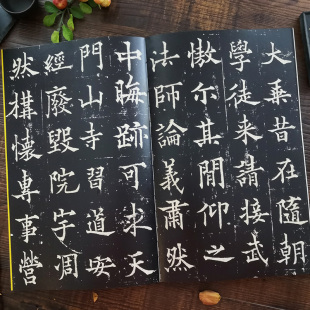 大乘昔在隨朝
學徒来請接武
慠尓其閒仰之
法師論義肅然
中晦跡可求天
門山寺習道安
經廢毀院宇凋
然搆懷專事營